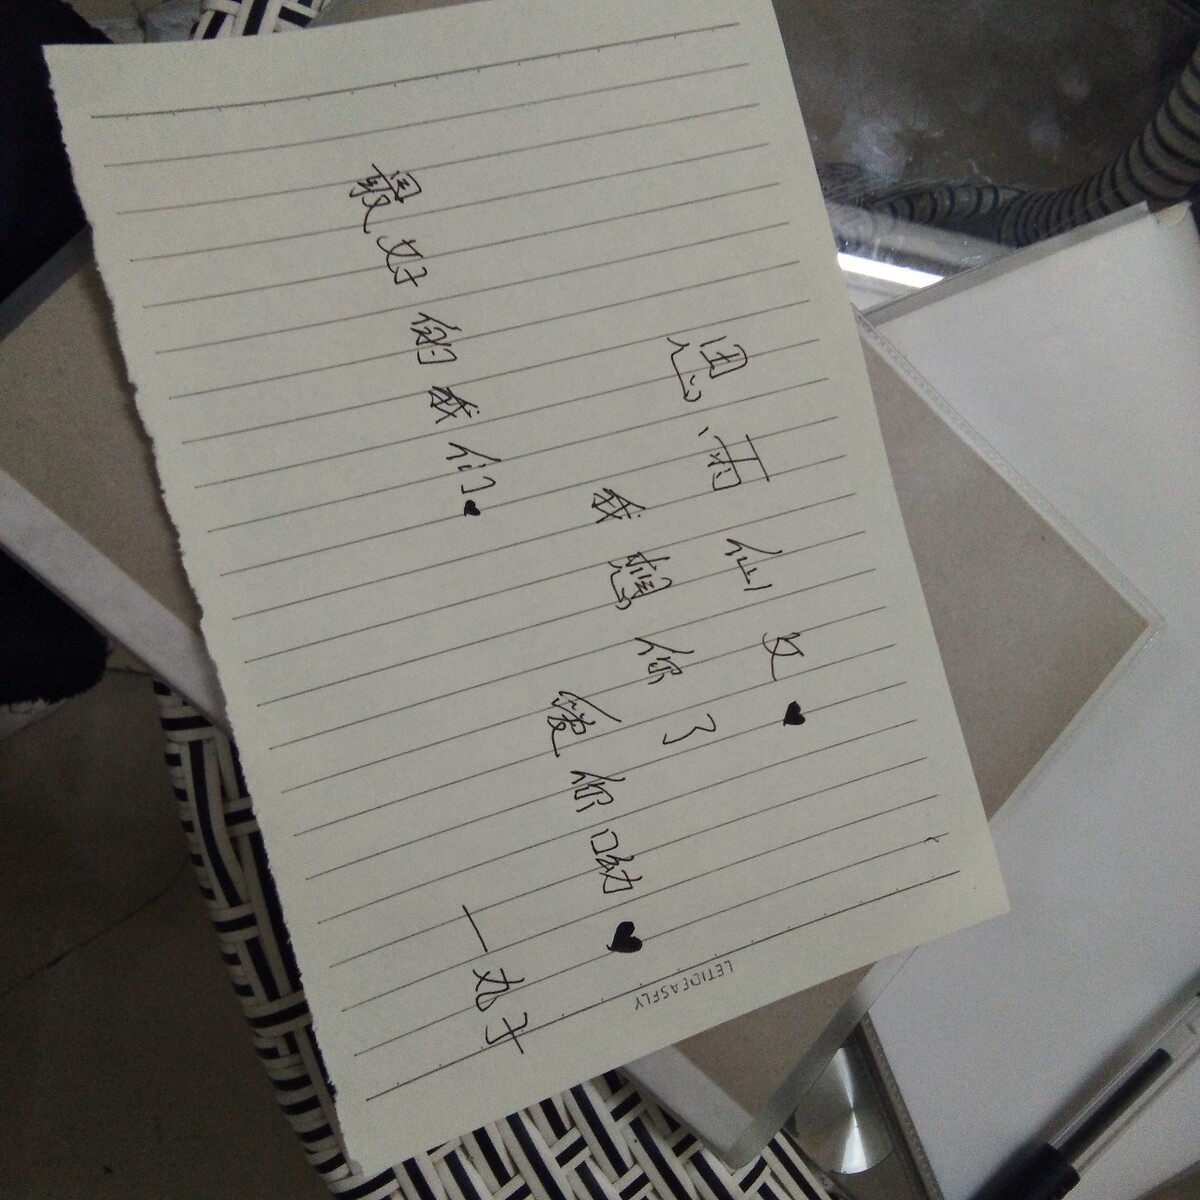 思雨仙女♥
我想你了
爱你呦♥
最好的我们♥
—丸子
LETIDEASFLY